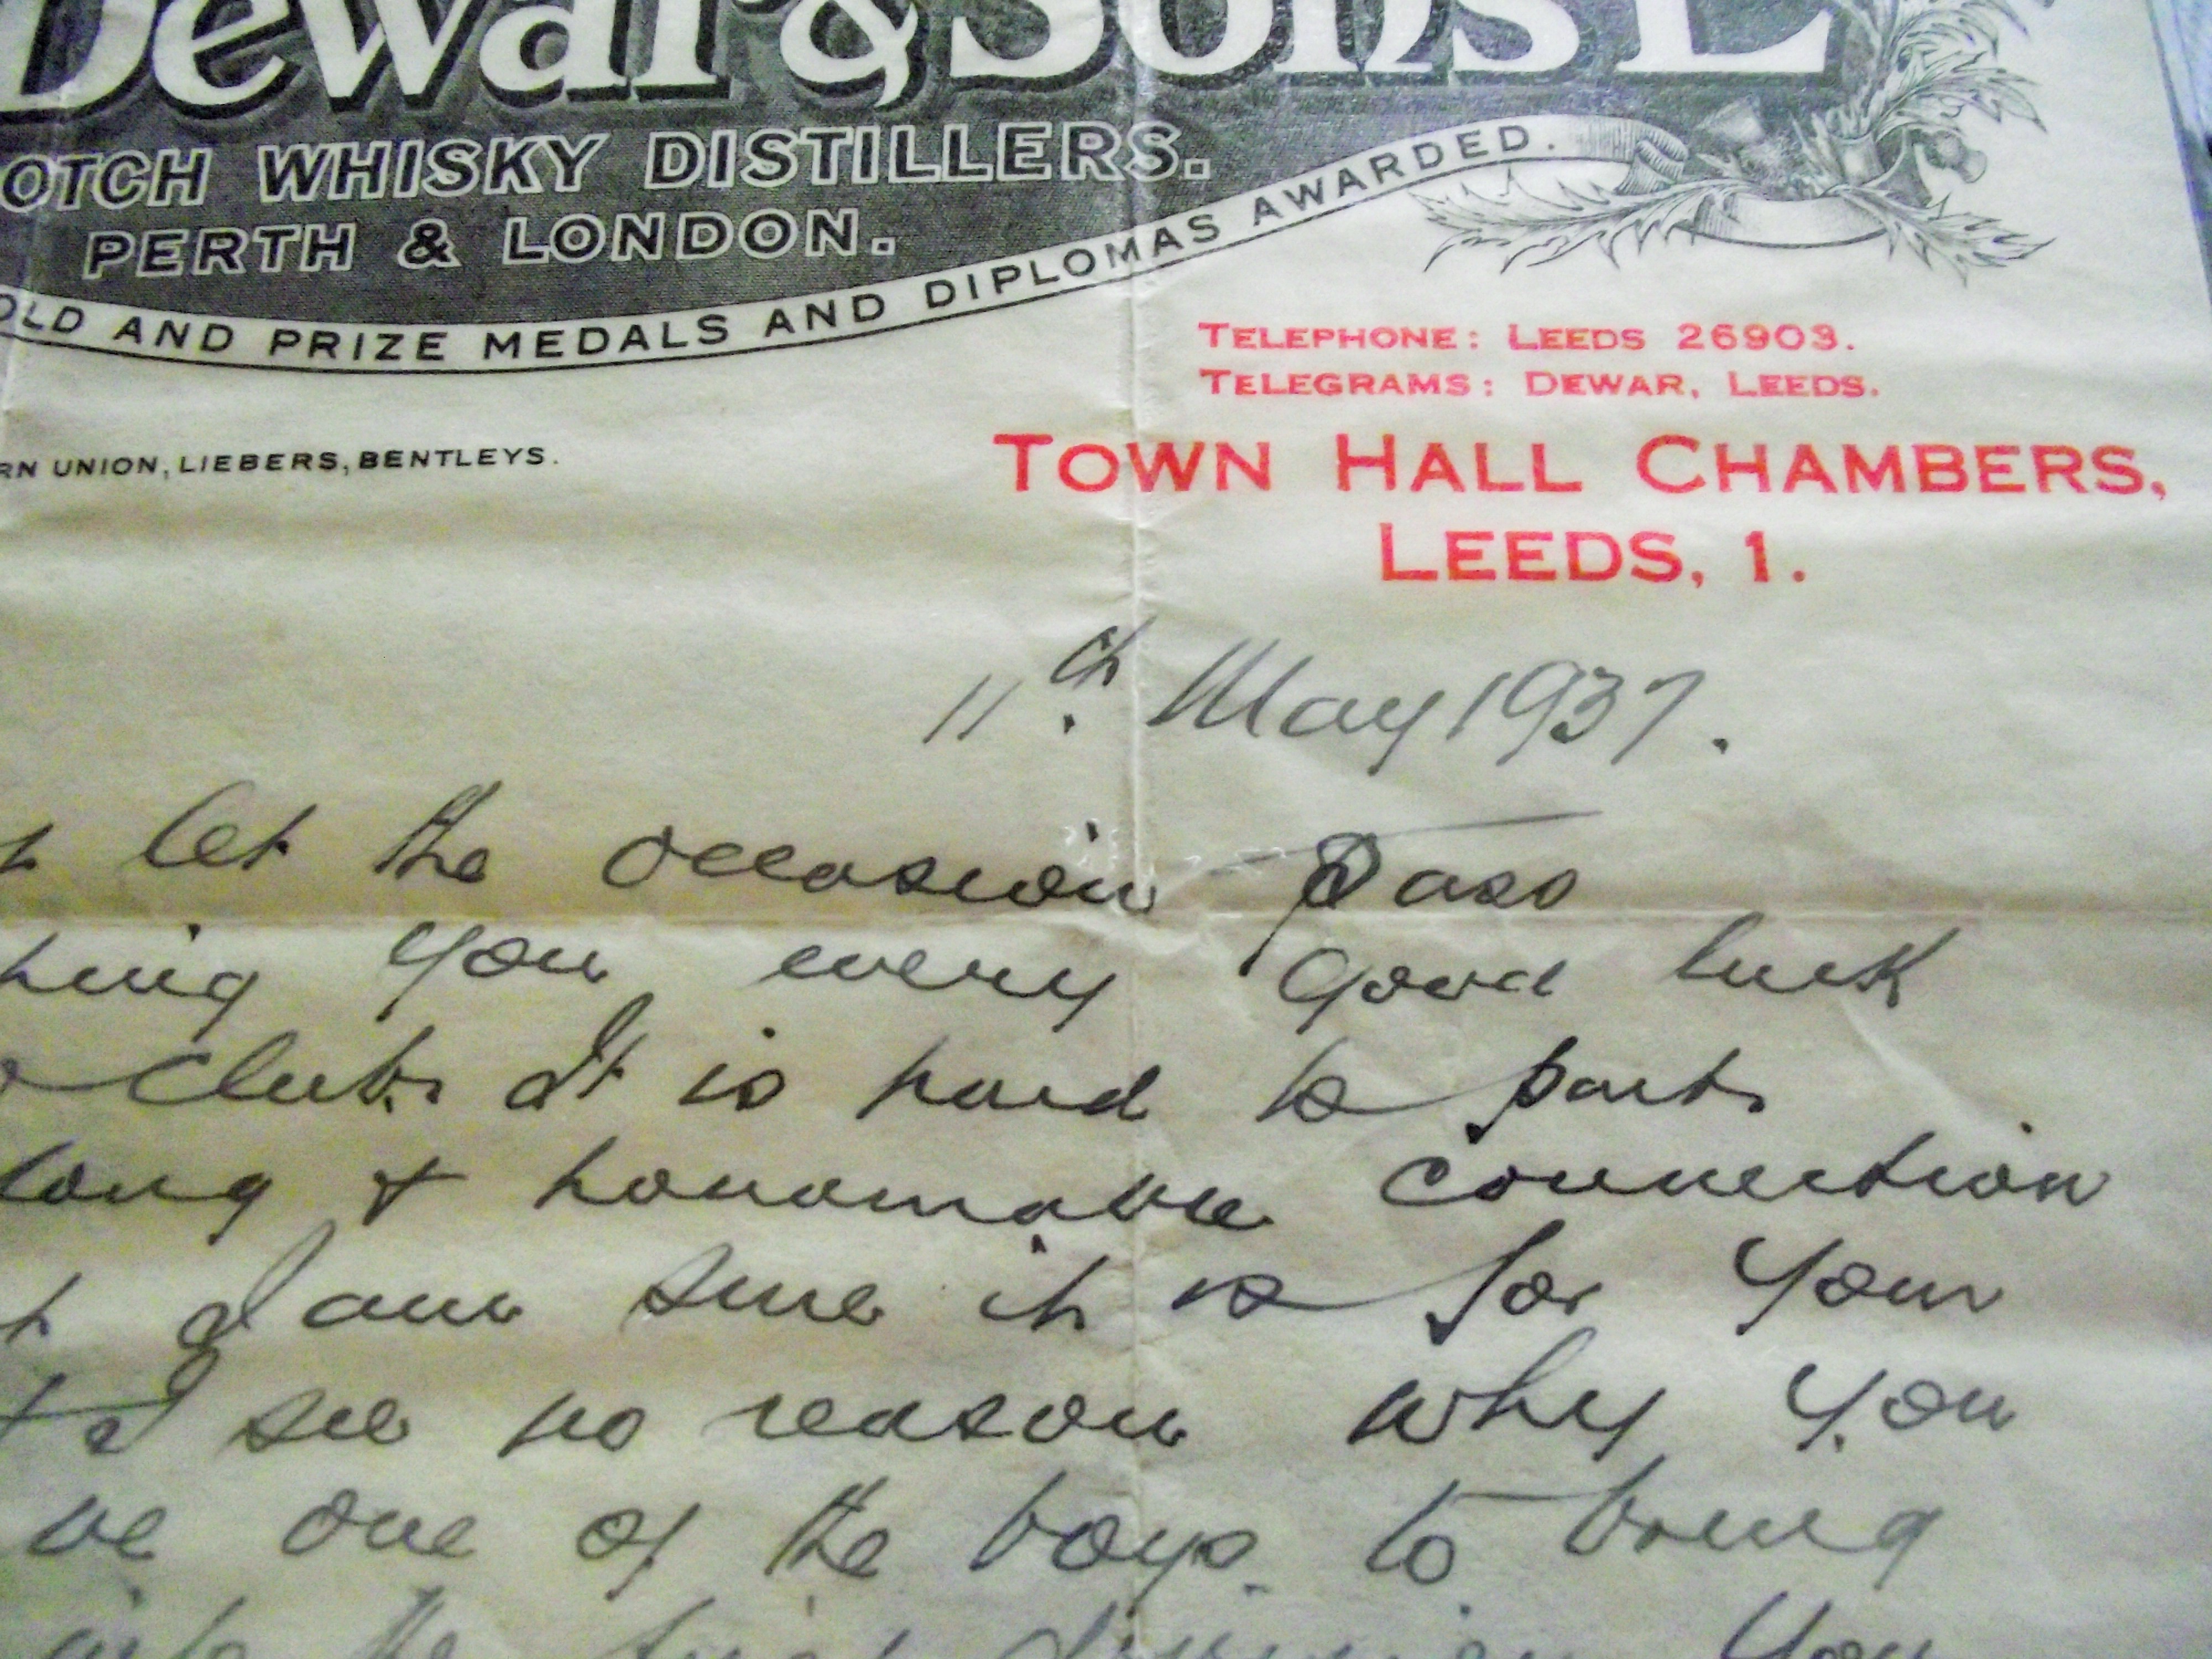 Dewar & Sons L
OTCH WHISKY DISTILLERS.
PERTH & LONDON.
OLD AND PRIZE MEDALS AND DIPLOMAS AWARDED.
TELEPHONE: LEEDS 26903.
TELEGRAMS: DEWAR, LEEDS.
RN UNION, LIEBERS, BENTLEYS.
TOWN HALL CHAMBERS,
LEEDS, 1.
11th. May 1937.
let the occasion pass
hing you every good luck
Club. It is hard to part
long + honourable connection
I am sure it is for your
I see no reason why you
be one of the boys to bring
into the first division You